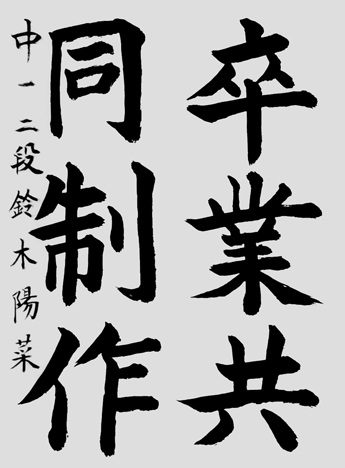 卒業共
同制作
中一二段鈴木陽菜